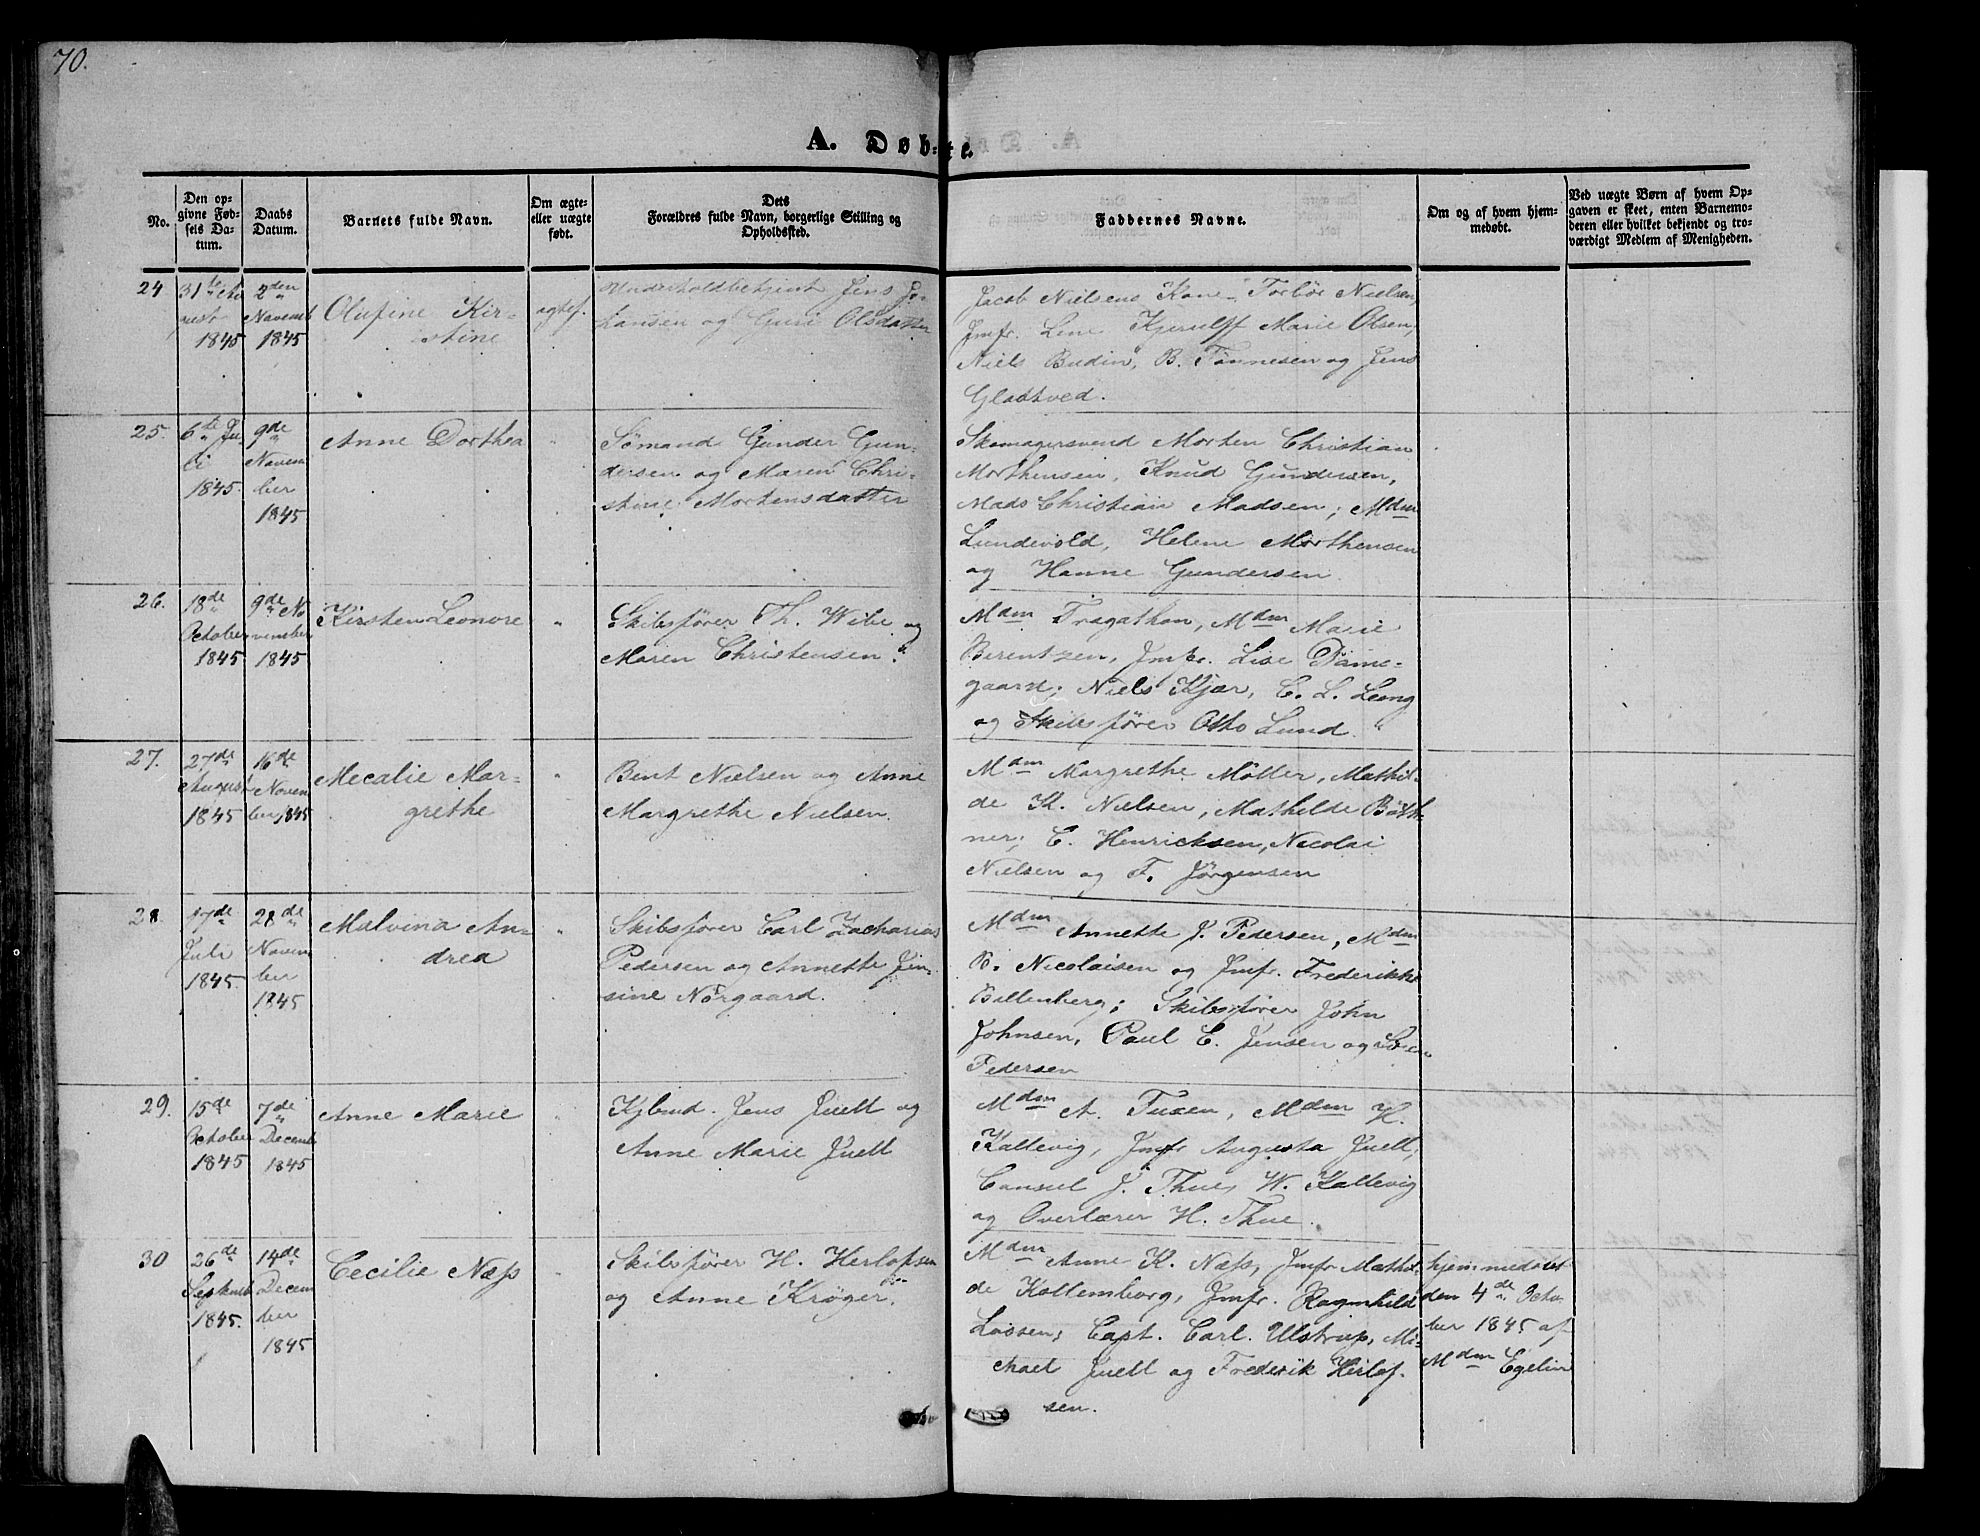 70.
A. Døbte.
No.
Den op-
givne Fød-
sels Da-
tum.
Daabs
Datum.
Barnets fulde Navn.
Om ægte
eller uægte
født.
Dets
Forældres fulde Navn, borgerlige Stilling og
Opholdssted.
Faddernes Navne.
Om og af hvem hjem-
medøbt.
Ved uægte Børn af hvem Op-
gaven er skeet, enten Barnemo-
deren eller hvilket bekjendt og tro-
værdigt Medlem af Menigheden.
24
31te Au
gust
1845
2den
Novemb
1845
Olufine Kir-
stine
ægtef.
Underholdbetjent Jens Jo-
hansen og Guri Olsdatter
Jacob Nielsens Kone, Torbør Nielsen,
Jmfr. Line Kjerulff Marie Olsen,
Niels Budin, B. Tønnesen og Jens
Glastved.
25.
6te Ju-
li
1845.
9de
Novem
ber
1845
Anne Dorthea
"
Sømand Gunder Gun-
dersen og Maren Chri-
stine Mortensdatter
Skomagersvend Morten Christian
Morthensen, Knud Gundersen,
Mads Christian Madsen; Mdm
Lundevold, Helene Morthensen
og Hanne Gundersen
26.
18de
October
1845
9de No
vember
1845
Kirsten Leonore
"
Skibsfører Th. Wibe og
Maren Christensen.
Mdm Fragathon, Mdm Marie
Berentzen, Jmfr. Lise Dame-
gaard; Niels Kjær, C. L. Leing
og Skibsfører Otto Lund.
27.
27de
August
1845
16de
Novem
ber 1845
Mecalie Mar-
grethe
"
Bent Nielsen og Anne
Margrethe Nielsen.
Mdm Margrethe Møller, Mathil-
de K. Nielsen, Mathilde Bøtt-
ner; C. Henricksen, Nicolai
Nielsen og F. Jørgensen
28.
17de
Juli
1845.
28de
Novem
ber
1845
Malvina An-
drea
"
Skibsfører Carl Zacharias
Pedersen og Annette Jen-
sine Nørgaard.
Mdm Annette J. Pedersen, Mdm
B. Nicolaisen og Jmfr. Frederikke
Bellenberg; Skibsfører John
Johnsen, Paul C. Jensen og Søren
Pedersen
29.
15de
October
1845
7de
Decemb
1845
Anne Marie
"
Kjbmd. Jens Juell og
Anne Marie Juell
Mdm A. Tuxen, Mdm K.
Kallevig, Jmfr Augusta Juell,
Consul J. Thue, W. Kallevig
og Overlærer H. Thue.
30
26de
Septemb
1845.
14de
Decem
ber
1845
Cecilie Næss
"
Skibsfører H. Herlofsen
og Anne Krøger.
Mdm Anne K. Næss, Jmfr Mathil-
de Kallemborg, Jmfr. Ragnhild
Lassen; Capt. Carl. Ulstrup, Mi-
chael Juell og Frederik Herlof-
sen.
hjemmedøbt
den 4de Octo-
ber 1845 af
Mdm Egelin